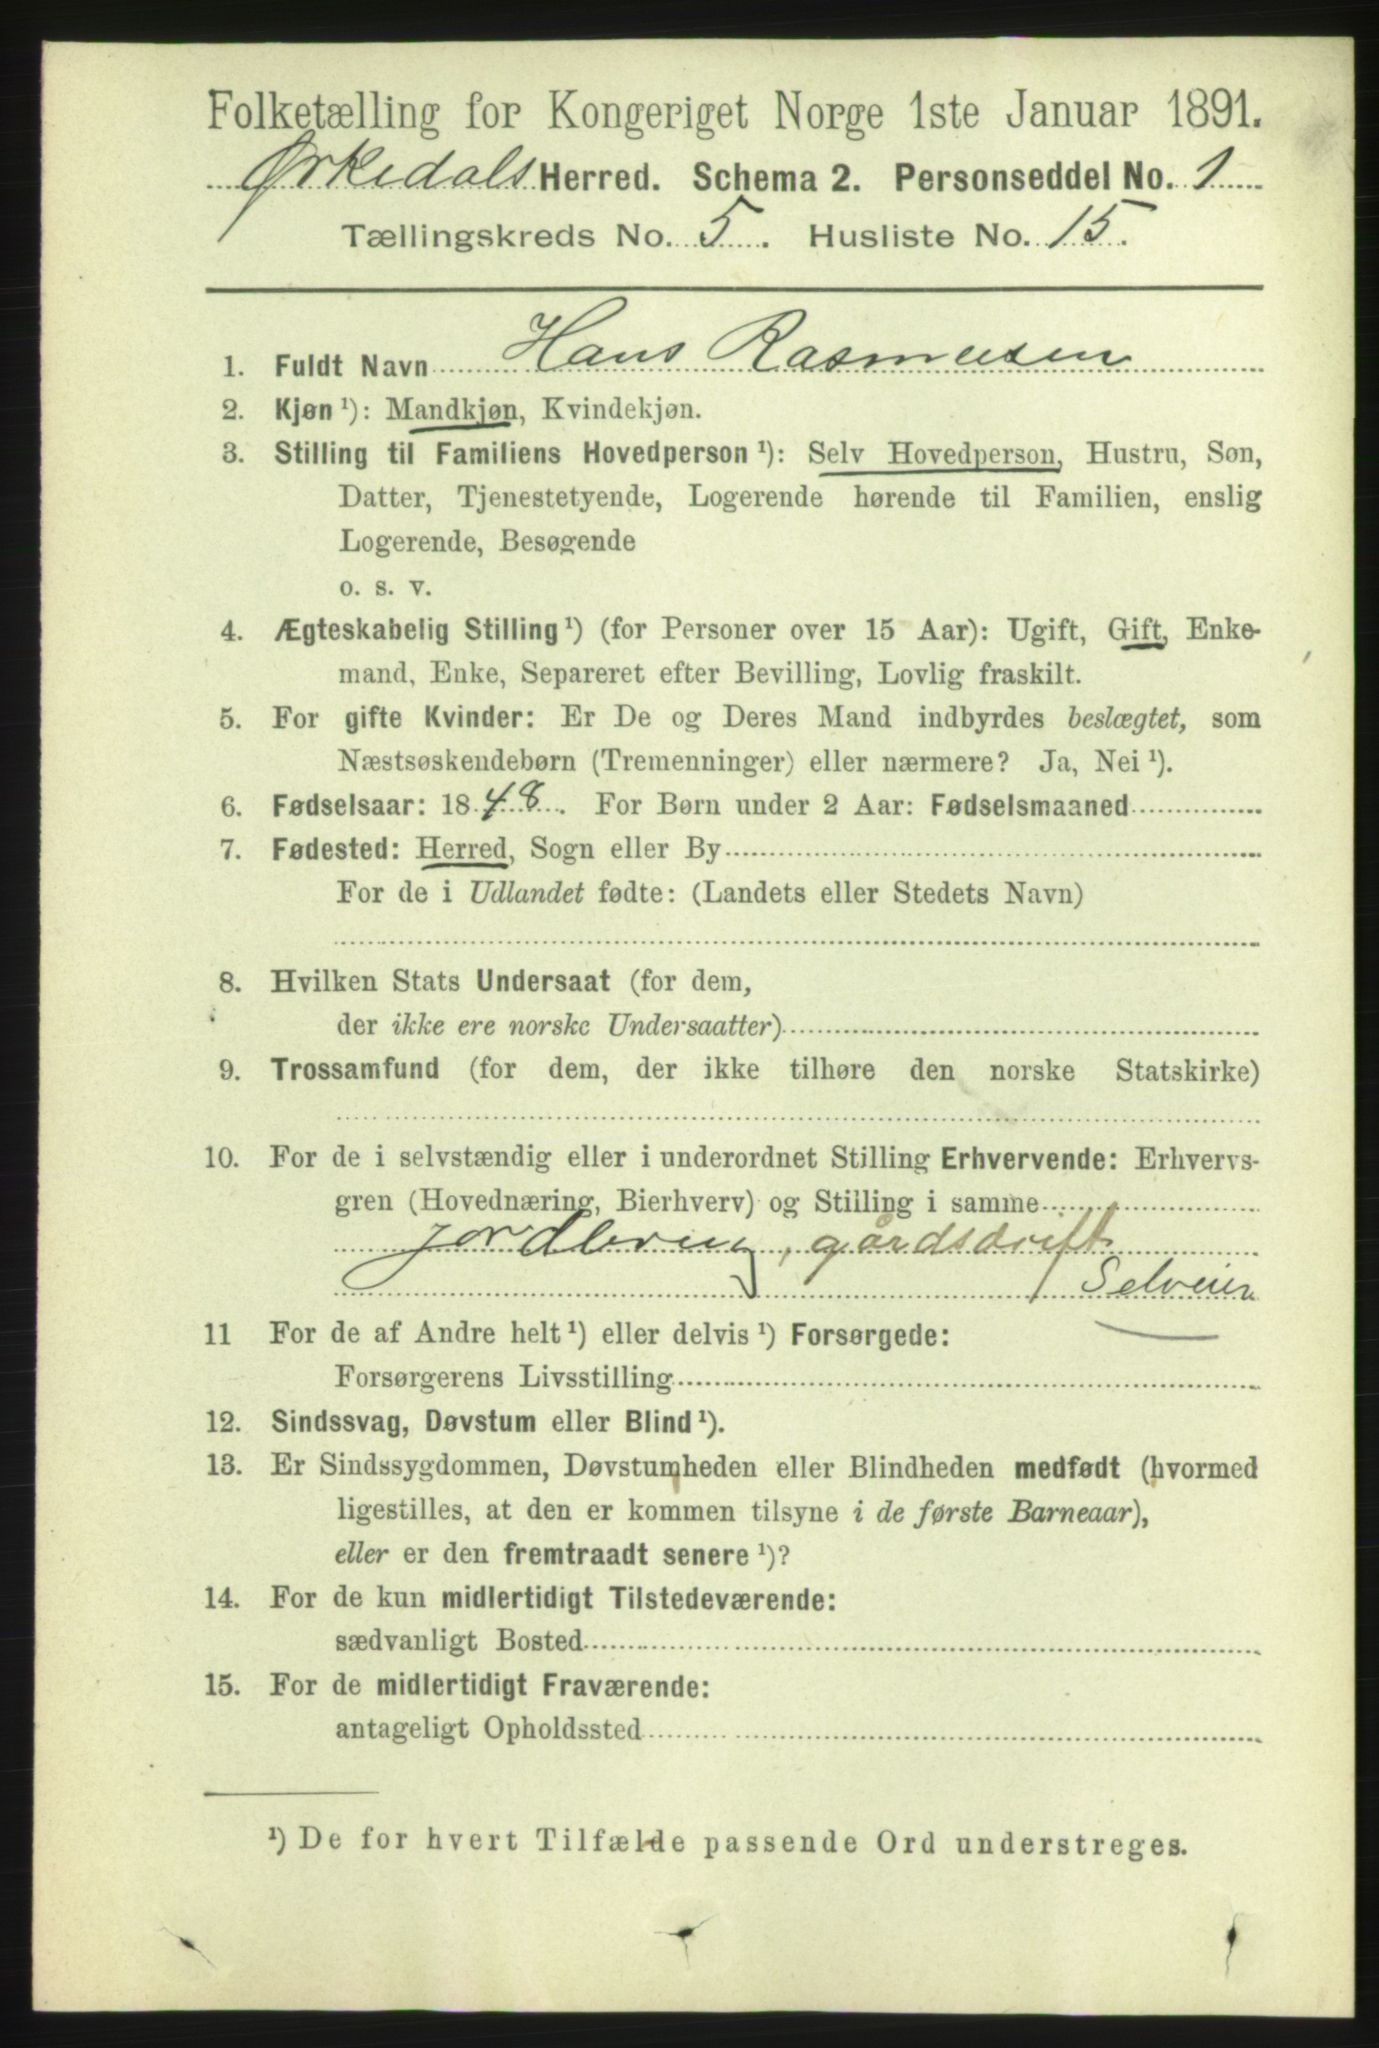 Folketælling for Kongeriget Norge 1ste Januar 1891.
Ørkedals Herred. Schema 2. Personseddel No. 1
Tællingskreds No. 5. Husliste No. 15.
1. Fuldt Navn Hans Rasmusen
2. Kjøn ¹): Mandkjøn, Kvindekjøn.
3. Stilling til Familiens Hovedperson ¹): Selv Hovedperson, Hustru, Søn,
Datter, Tjenestetyende, Logerende hørende til Familien, enslig
Logerende, Besøgende
o. s. v.
4. Ægteskabelig Stilling ¹) (for Personer over 15 Aar): Ugift, Gift, Enke-
mand, Enke, Separeret efter Bevilling, Lovlig fraskilt.
5. For gifte Kvinder: Er De og Deres Mand indbyrdes beslægtet, som
Næstsøskendebørn (Tremenninger) eller nærmere? Ja, Nei ¹).
6. Fødselsaar: 1848. For Børn under 2 Aar: Fødselsmaaned
7. Fødested: Herred, Sogn eller By
For de i Udlandet fødte: (Landets eller Stedets Navn)
8. Hvilken Stats Undersaat (for dem,
der ikke ere norske Undersaatter)
9. Trossamfund (for dem, der ikke tilhøre den norske Statskirke)
10. For de i selvstændig eller i underordnet Stilling Erhvervende: Erhvervs-
gren (Hovednæring, Bierhverv) og Stilling i samme
Jordbrug, gårdsdrift
Selveier
11 For de af Andre helt ¹) eller delvis ¹) Forsørgede:
Forsørgerens Livsstilling
12. Sindssvag, Døvstum eller Blind ¹).
13. Er Sindssygdommen, Døvstumheden eller Blindheden medfødt (hvormed
ligestilles, at den er kommen tilsyne i de første Barneaar),
eller er den fremtraadt senere ¹)?
14. For de kun midlertidigt Tilstedeværende:
sædvanligt Bosted
15. For de midlertidigt Fraværende:
antageligt Opholdssted
¹) De for hvert Tilfælde passende Ord understreges.